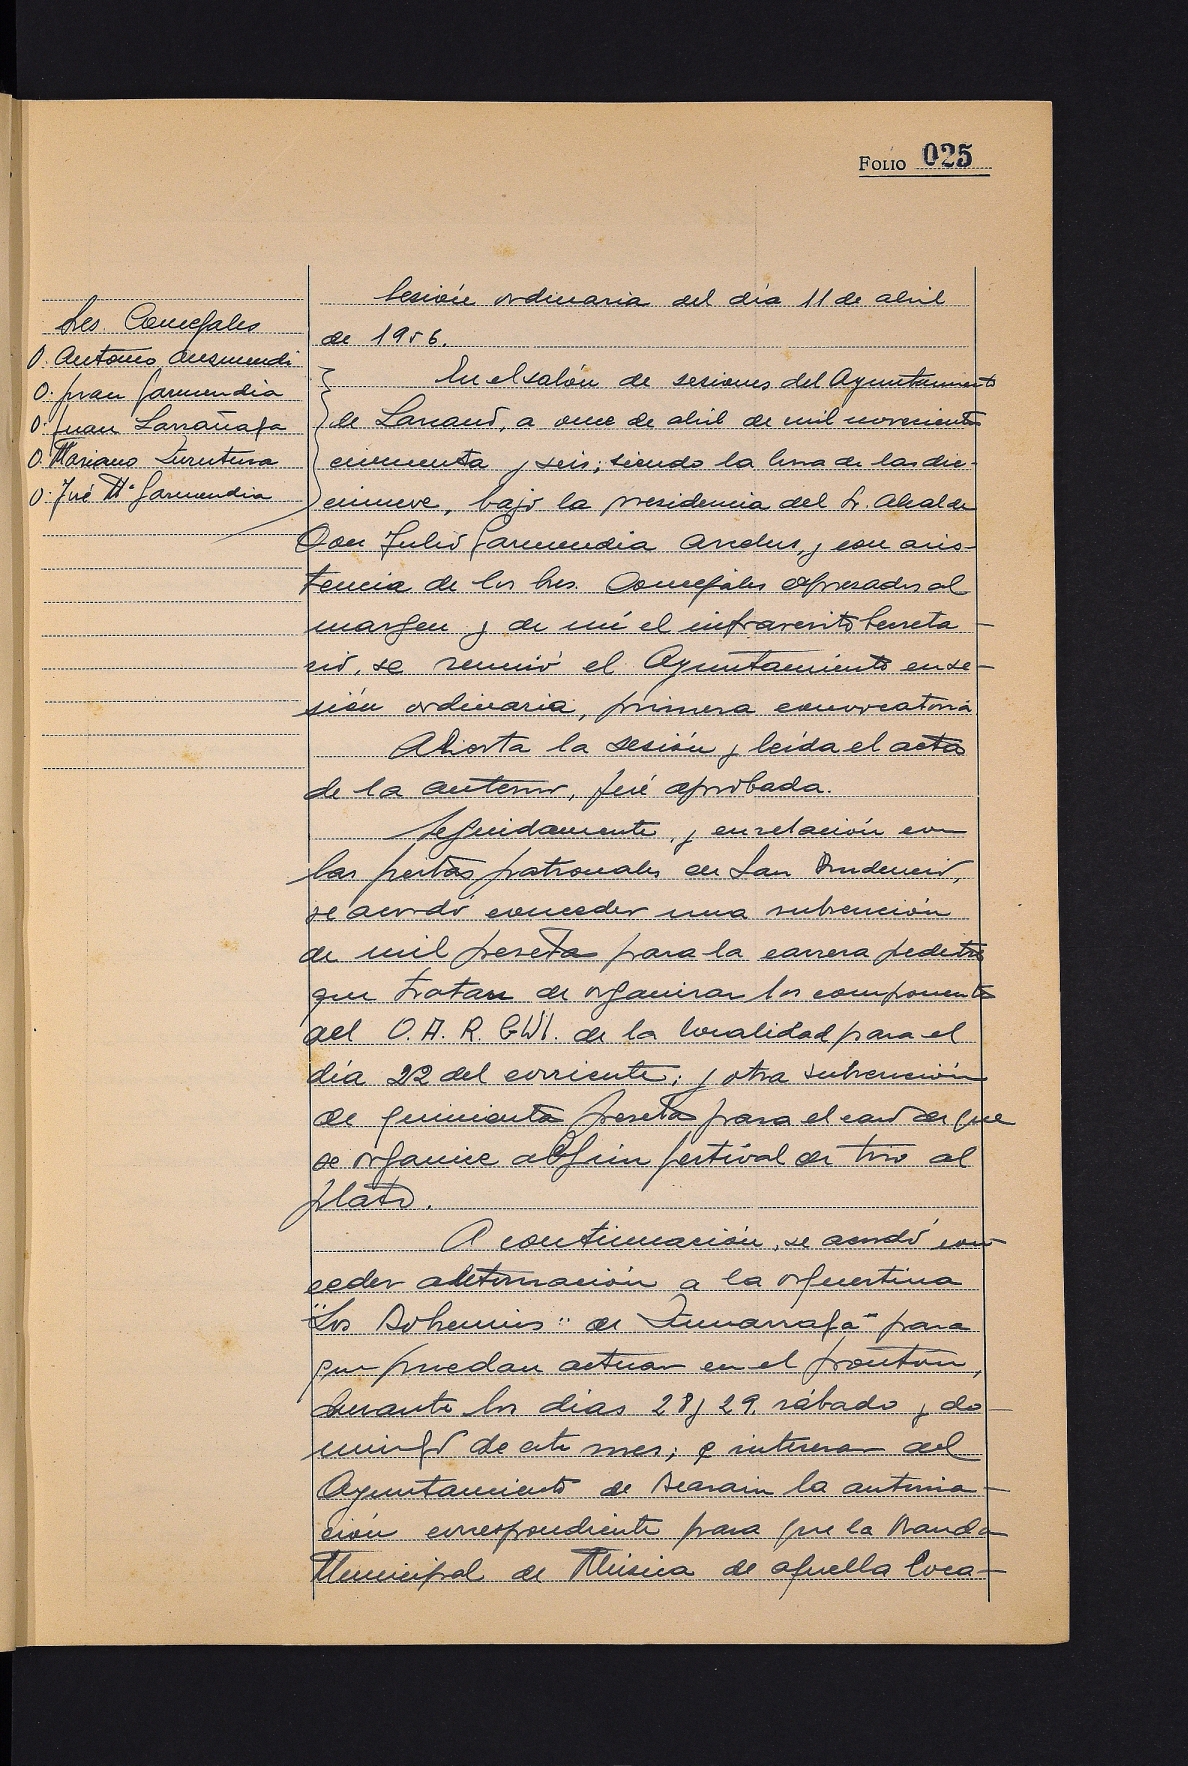 FOLIO 025
Sres. Concejales
D. Antonio Auzmendi
D. Juan Garmendia
D. Juan Larrañaga
D. Mariano
D. José Mª Garmendia
Sesión ordinaria del día 11 de abril
de 1956.
En el salón de sesiones del Ayuntamiento
de Lazcano, a once de abril de mil novecientos
cincuenta y seis; siendo la hora de las die-
cinueve, bajo la presidencia del Sr. Alcalde
Don Julio Garmendia y con asis-
tencia de los Sres. Concejales expresados al
margen y de mí el infrascrito Secreta-
rio, se reunió el Ayuntamiento en se-
sión ordinaria, primera convocatoria.
Abierta la sesión y leída el acta
de la anterior, fué aprobada.
Seguidamente, y en relación con
las fiestas patronales de San Prudencio,
se acordó conceder una subvención
de mil pesetas para la carrera pedestre
que tratan de organizar los componentes
del O.A.R. de la localidad para el
día 22 del corriente; y otra subvención
de quinientas pesetas para el caso de que
se organice algún festival de tiro al
plato.
A continuación, se acordó con-
ceder autorización a la orquestina
"Los Bohemios" de Zumarraga para
que puedan actuar en el frontón,
durante los días 28 y 29, sábado y do-
mingo de este mes; e interesar del
Ayuntamiento de Beasain la autoriza-
ción correspondiente para que la Banda
Municipal de Música de aquella loca-